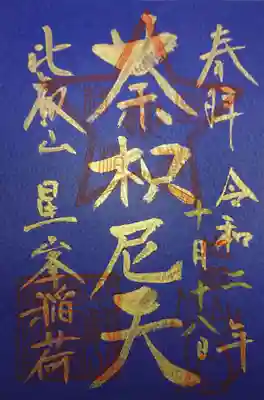 奉拝 令和二年
十月十八日
荼枳尼天
比叡山 星峯稲荷